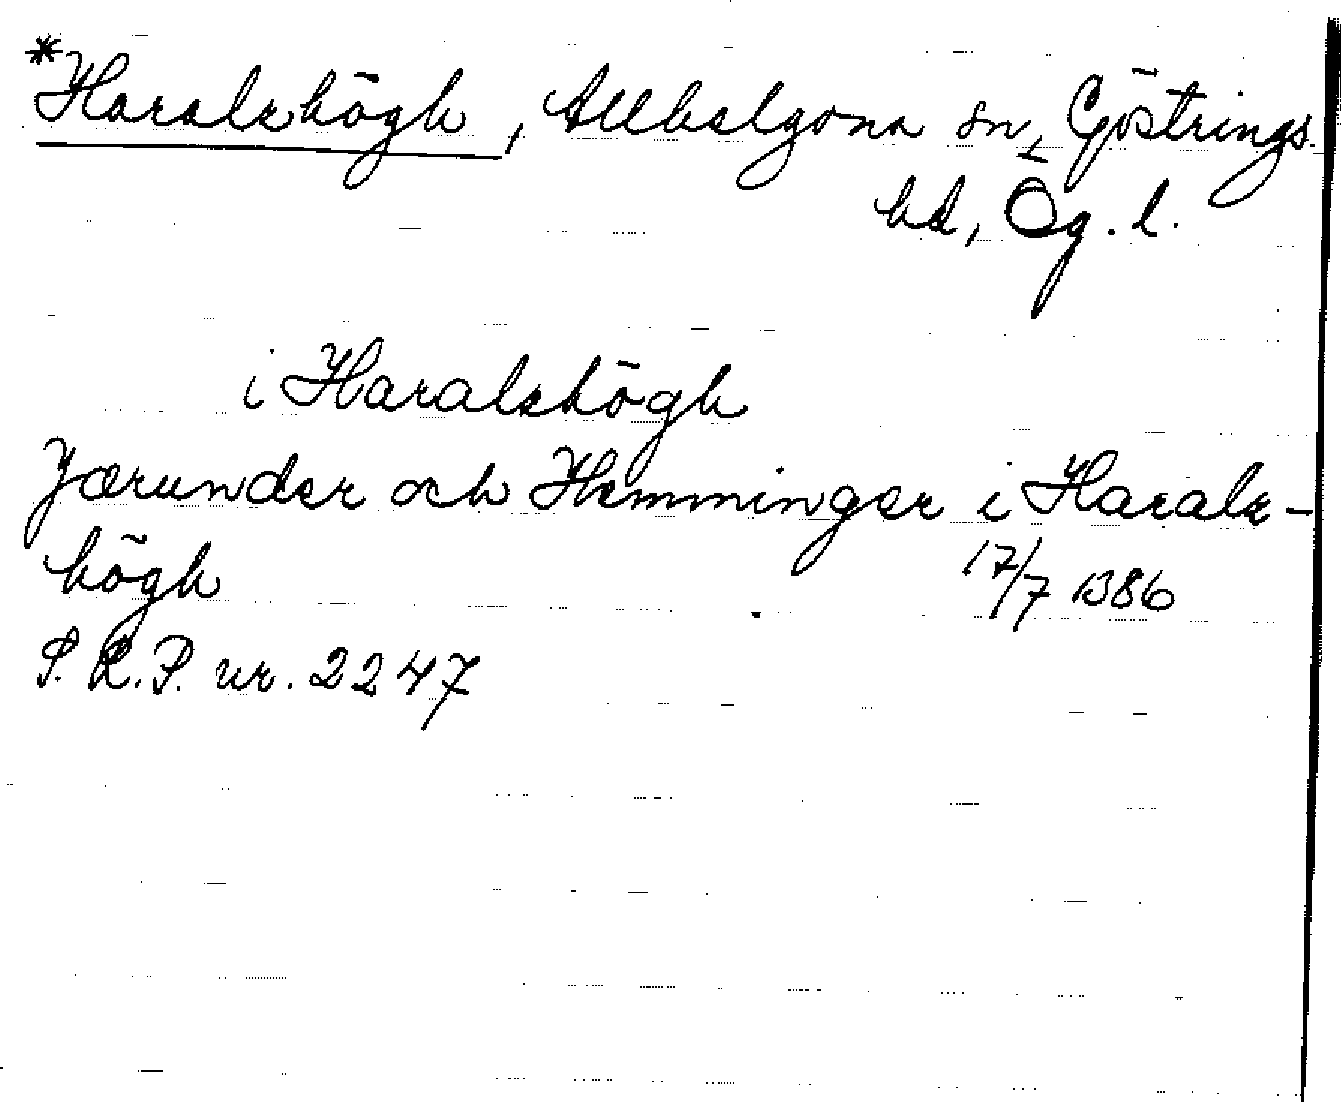 *Haralshögh, Allhelgona sn, Göstrings
hd, Ög. l.
i Haralshögh
Jærunder och Hemminger i Harals-
högh 17/7 1386
S.R.P. nr. 2247